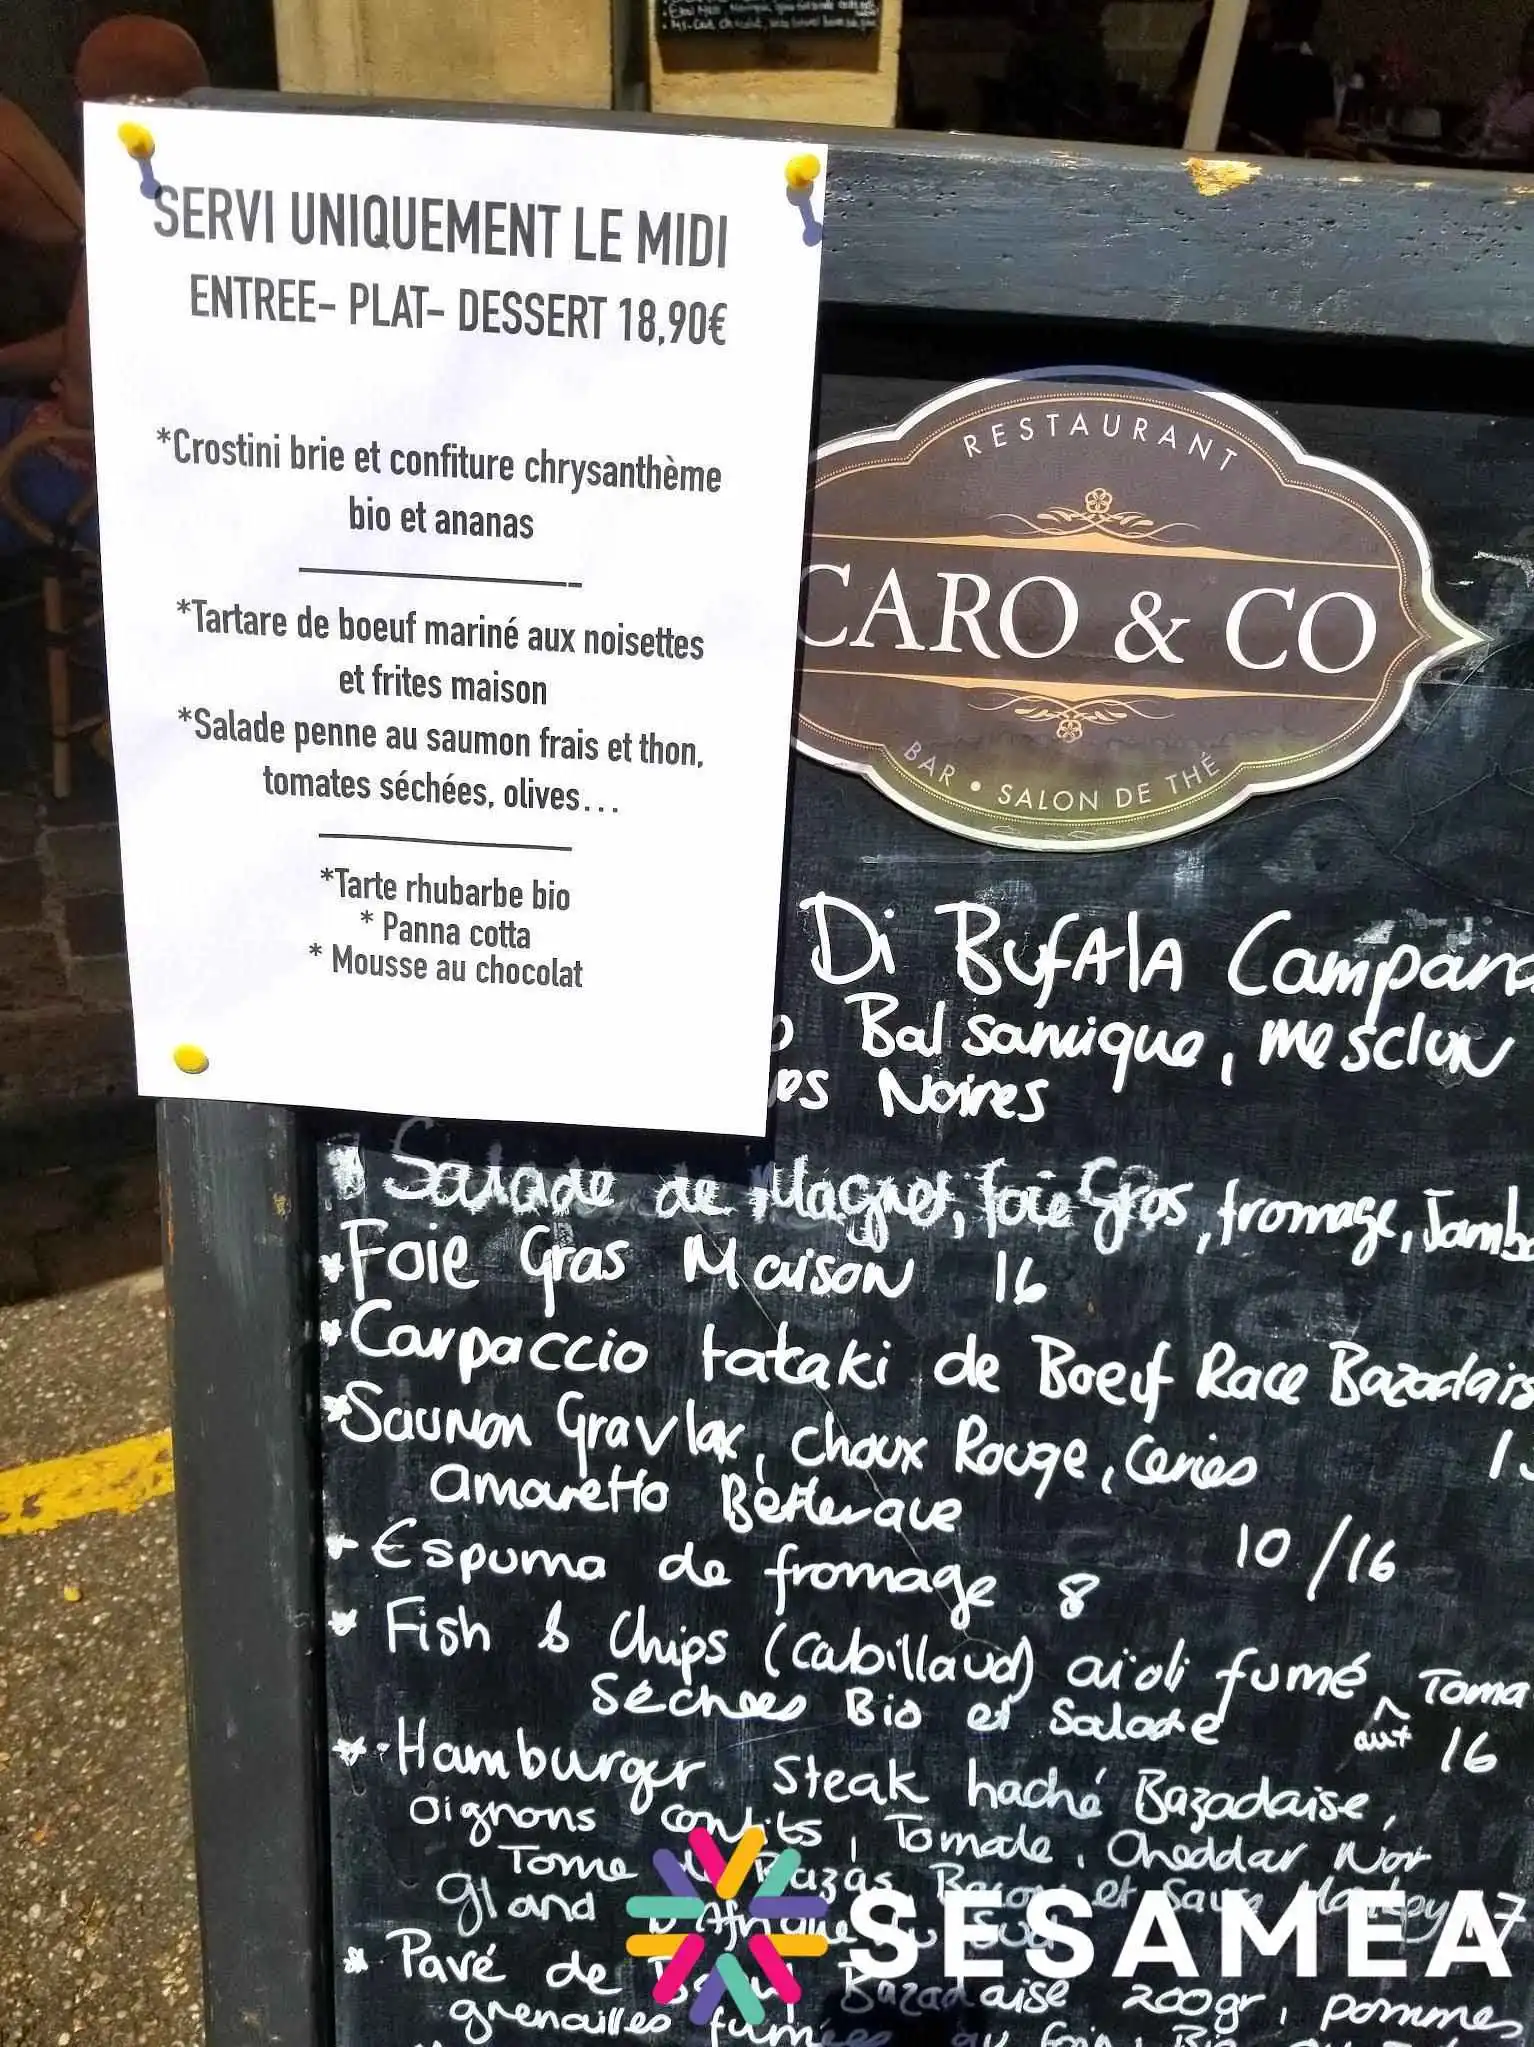 SERVI UNIQUEMENT LE MIDI
ENTREE- PLAT- DESSERT 18,90€
*Crostini brie et confiture chrysanthème
bio et ananas
*Tartare de boeuf mariné aux noisettes
et frites maison
*Salade penne au saumon frais et thon,
tomates séchées, olives...
*Tarte rhubarbe bio
* Panna cotta
* Mousse au chocolat
RESTAURANT
CARO & CO
BAR • SALON DE THÉ
Di BufAlA Campana
Balsamique, mesclun
Noires
* Salade de Magret, foie Gras, fromage, Jambo
* Foie Gras Maison 16
* Carpaccio tataki de Boeuf Race Bazadais
* Saumon Gravlax, choux Rouge, Cerises
amaretto Betterave 10/16
* Espuma de fromage 8
* Fish & Chips (cabillaud) aïoli fumé aux Toma
Séchées Bio et Salade 16
* Hamburger Steak haché Bazadaise,
oignons confits, Tomate, Cheddar Noir
Tome de Bazas, Bacon et Sauce
gland d'Afrique du Sud
* Pavé de Boeuf Bazadaise 200gr, pommes
grenailles fumées au foin, Bio
SESAMEA